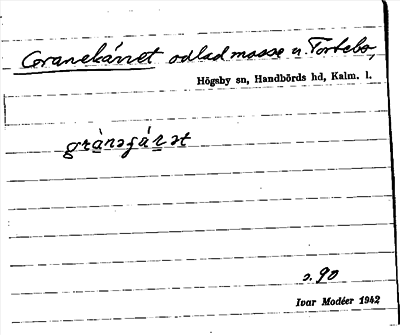 Granekärret odlad mosse n. Tortebo,
Högsby sn, Handbörds hd, Kalm. l.
grànəʃárət
s. 90
Ivar Modéer 1942